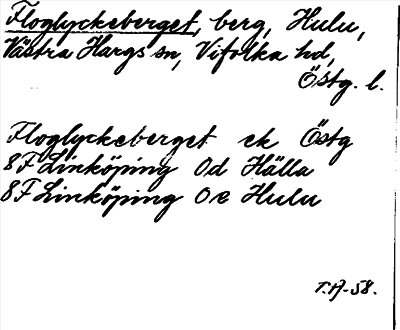 Floglyckeberget, berg, Hulu,
Västra Hargs sn, Vifolka hd,
Östg. l.
Floglyckeberget ek Östg
8F Linköping 0d Hälla
8F Linköping 0e Hulu
T.A-58.